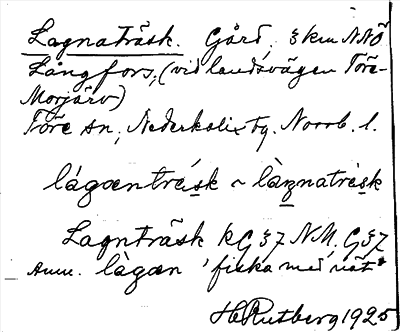 Lagnaträsk. Gård, 3 km NNÖ
Långfors, (vid landsvägen Töre-
Morjärv)
Töre sn, Nederkalix tg. Norrb. l.
lágœntrésk ~ làgnatrèsk
Lagnträsk kG 37 NM, G 37
Anm. làgœn 'fiska med nät'
H Rutberg 1925